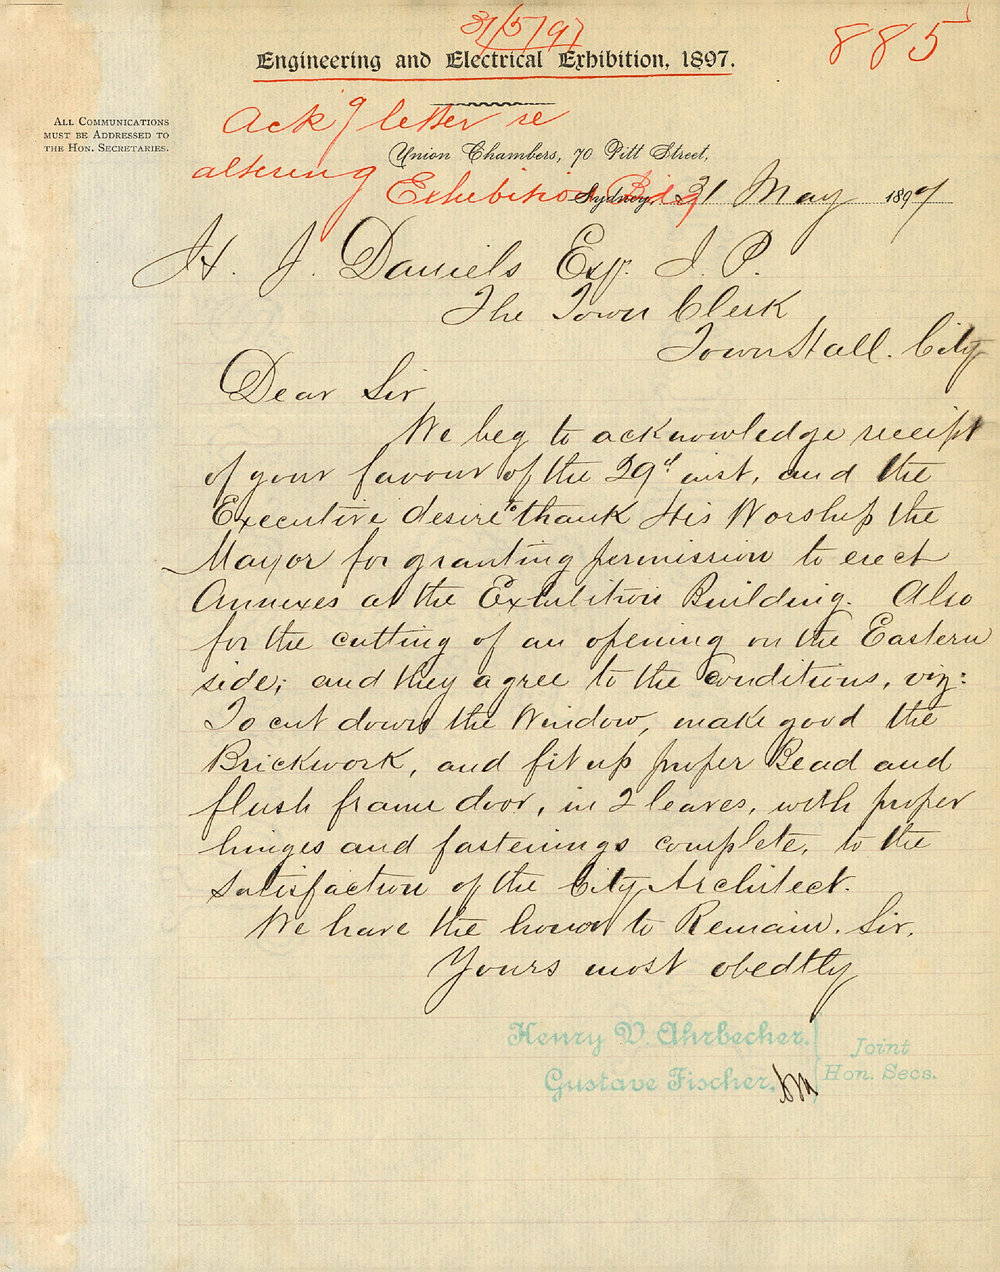 31/5/97
885
Engineering and Electrical Exhibition, 1897.
All Communications
must be Addressed to
the Hon. Secretaries.
Ack g letter re
altering
Exhibition Bdg
Union Chambers, 70 Pitt Street,
Sydney, 31 May 1897
H. J. Daniels Esq. J. P.
The Town Clerk
Town Hall. City
Dear Sir
We beg to acknowledge receipt
of your favour of the 29th inst, and the
Executive desire to thank His Worship the
Mayor for granting permission to erect
Annexes at the Exhibition Building. Also
for the cutting of an opening on the Eastern
side; and they agree to the conditions, viz:
To cut down the Window, make good the
Brickwork, and fit up proper Bead and
flush frame door, in 2 leaves, with proper
hinges and fastenings complete, to the
satisfaction of the City Architect.
We have the honor to Remain. Sir.
Yours most obedtly
Henry V. Ahrbecker.
Gustave Fischer.
Joint
Hon. Secs.